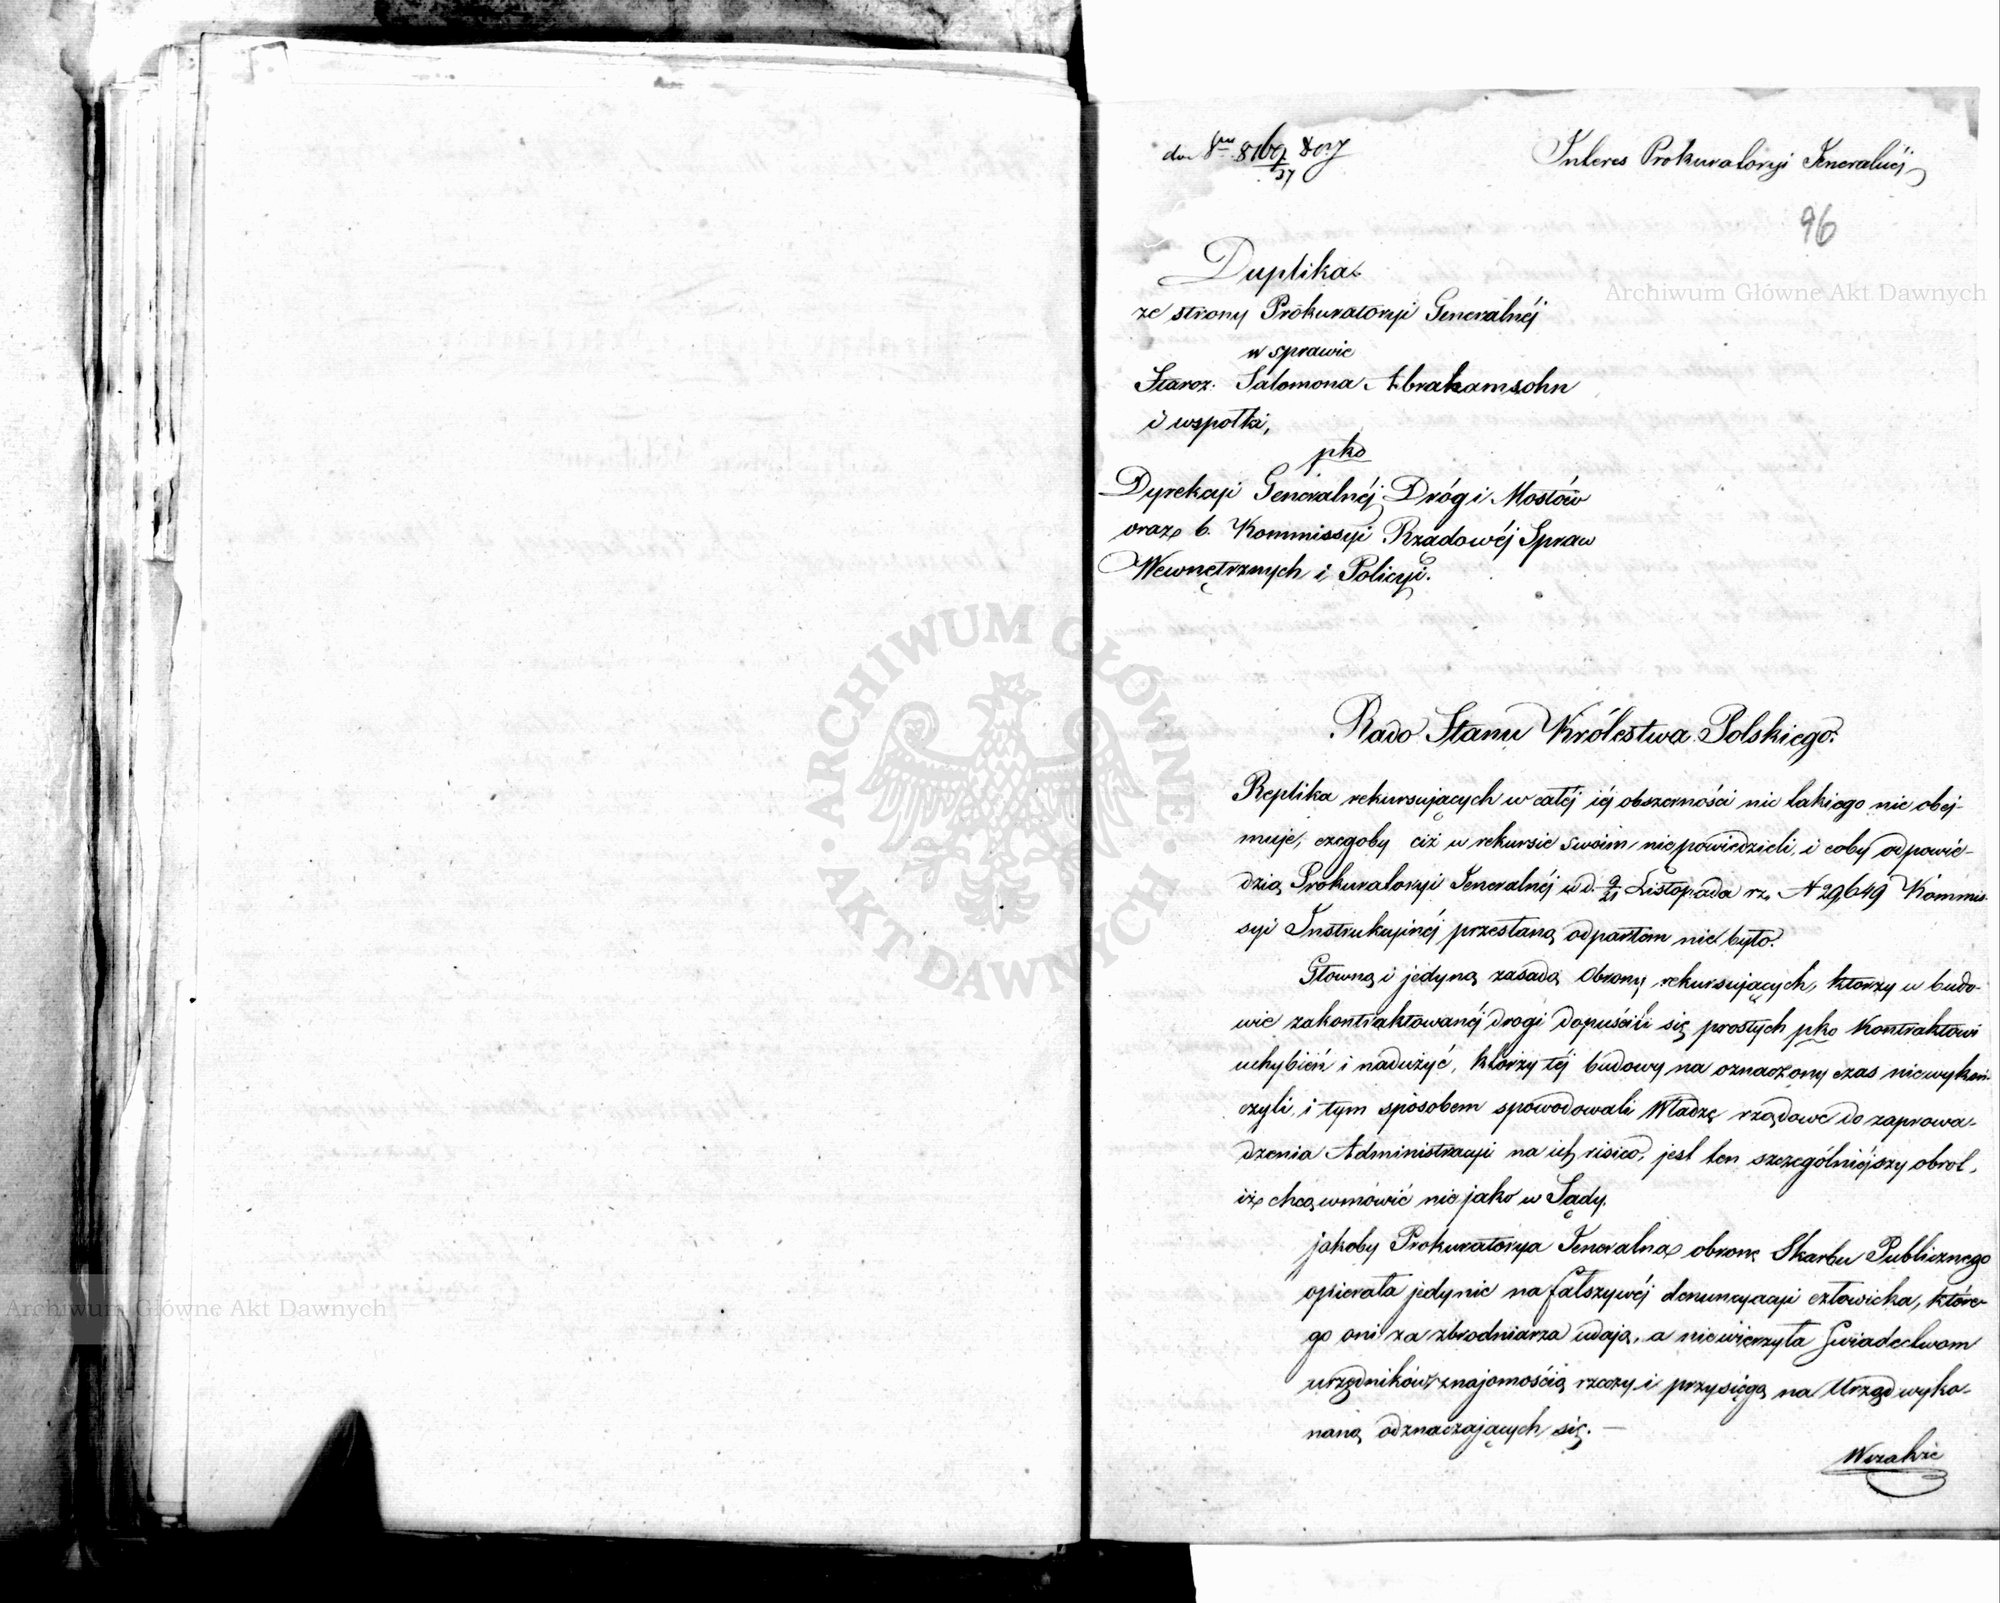 Interes Prokuratoryi Jeneralnéj
96
Duplika
ze strony Prokuratoryi Generalnéj
w sprawie
Staroz. Salomona Abrahamsohn
i wspolki,
pko
Dyrekcyi Generalnéj Dróg i Mostów
oraz b. Kommissyi Rządowéj Spraw
Wewnętrznych i Policyi.
Rado Stanu Królestwa Polskiego.
Replika rekursujących w całéj iéj obszerności nic takiego nie obej-
muje, czegoby ciż w rekursie swoim nie powiedzieli, i coby odpowie-
dzią Prokuratoryi Jeneralnéj w d. 9/21 Listopada rz. N 29,649 Kommis-
syi Instrukcyinéj przesłaną odpartem nie było.
Głowną i jedyną zasadą Obrony rekursujących, ktorzy w budo-
wie zakontraktowanéj drogi dopuścili się prostych pko Kontraktowi
uchybień i nadużyć, ktorzy téj budowy na oznaczony czas niewykoń-
czyli, i tym sposobem spowodowali Władzę rządowe do zaprowa-
dzenia Administracyi na ich risico, jest ten szczególniéjszy obrot,
iż chcą wmówić nie jako w Sądy.
jakoby Prokuratorya Jeneralna obronę Skarbu Publicznego
opierała jedynie na fałszywéj denuncyacyi człowieka, które-
go oni za zbrodniarza udają, a niewierzyła Swiadectwom
urzędników znajomością rzeczy i przysięgą na Urząd wyko-
naną odznaczających się. —
W razie
ARCHIWUM GŁÓWNE AKT DAWNYCH
Archiwum Główne Akt Dawnych
Archiwum Główne Akt Dawnych